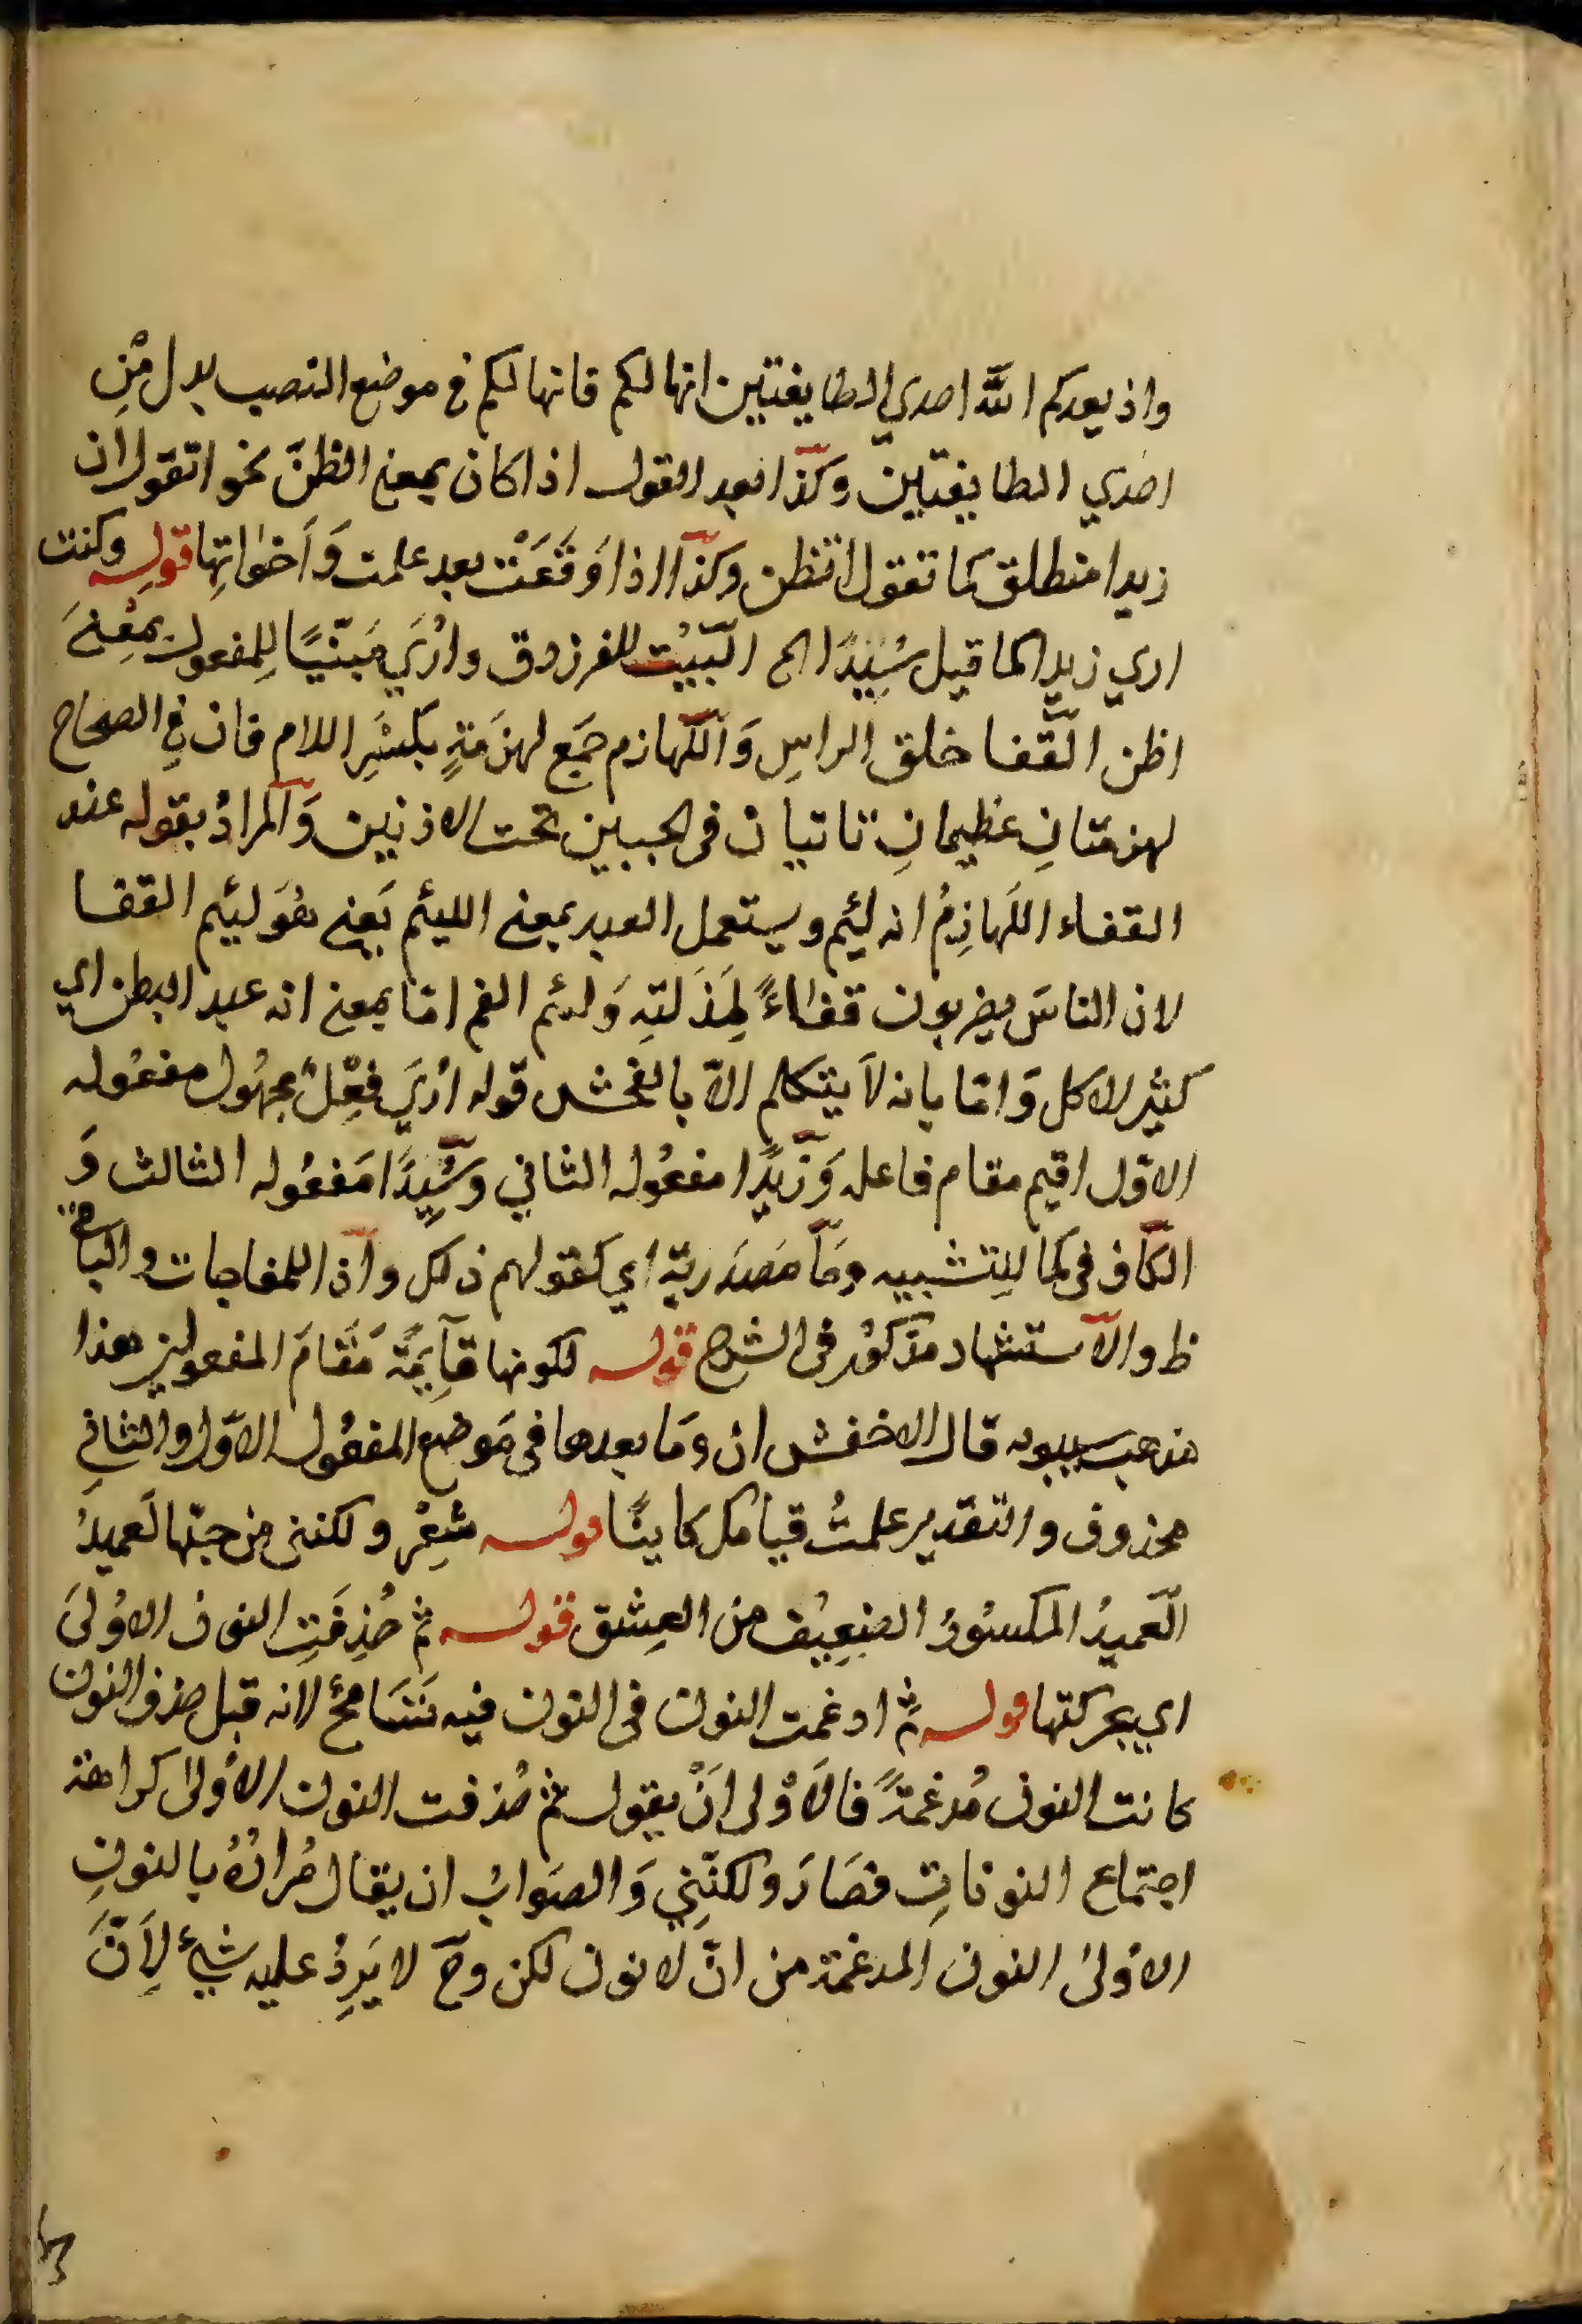 واذ يعدكم اللّه احدي الطايفتين انها لكم فانها لكم في موضع النصب بدل مِّن
احدي الطايفتين وكذا بعد القول اذا كان بمعني الظنّ نحو اتقول ان
زيدا منطلق كما تقول اتظن وكذا اذا وَقَعَتْ بعد علمت وَاَخواتِها قوله وكنت
اري زيدا كما قيل سَيِّدًا الخ البَيْت للفرزدق واُرَي مَبنيًّا لِلمفعول بمعْنَي
اظن القَفا خلق الراسِ وَاللَّهازم جَمع لهزمَةٍ بِكَسْرِ اللام فان في الصحاح
لهزمتانِ عظيمانِ ناتيان في الجبيين تحت الاذنين وَالمرادُ بقوله عند
القفاء اللَهازِمُ انه لئيم ويستعمل العبد بمعني اللئيم يَعني هُوَ لئيم القفا
لان الناسَ يضربون قفاءً لِمَذَلتِهِ وَلئم الفم امّا بمعني انه عبد البطن اي
كثير الاكل وَامّا بانه لاَ يتكلم الاّ بالفحش قوله اُرَي فِعْلٌ مجهُول مفعُوله
الاوّل اقيم مقام فاعله وَزَيدًا مفعُوله الثاني وسَيِّدًا مَفعُوله الثالث وَ
الكاف في كما لِلتشبيه وَمَا مَصدَريّة اي كقولهم ذلك واذا للمفاجات والباقي
ظ والاستشهاد مذكُور في الشرح قوله لكونها قآيِمَةً مَقَامَ المفعولين هذا
مذهب سيبويه قال الاخفش ان وَمَا بعدها في مَوضع المفعُول الاوّل والثاني
محذوف والتقدير علمتُ قيامك كاينًا قوله شِعْر ولكنني من حبّها لَعميدُ
العَميدُ المكسُورُ الضَعِيْف من العِشق قوله ثم حُذِفَتِ النون الاوُليَ
اي بحركتها قوله ثم ادغمت النون في النون فيه تَسَامحٌ لانه قبل حذف النون
كانت النون مُدغمَةً فالاَوْلى اَنْ يقول ثم حُذفت النون الاُولىٰ كراهة
اجتماع النوناتِ فصَارَ ولكنّنِي وَالصَوابُ ان يقال مُرادُهُ بالنونِ
الاُولىٰ النون المدغمة من انّ لا نون لكن وحَ لا يَرِدُ عليه شيٌ لِاَنَّ